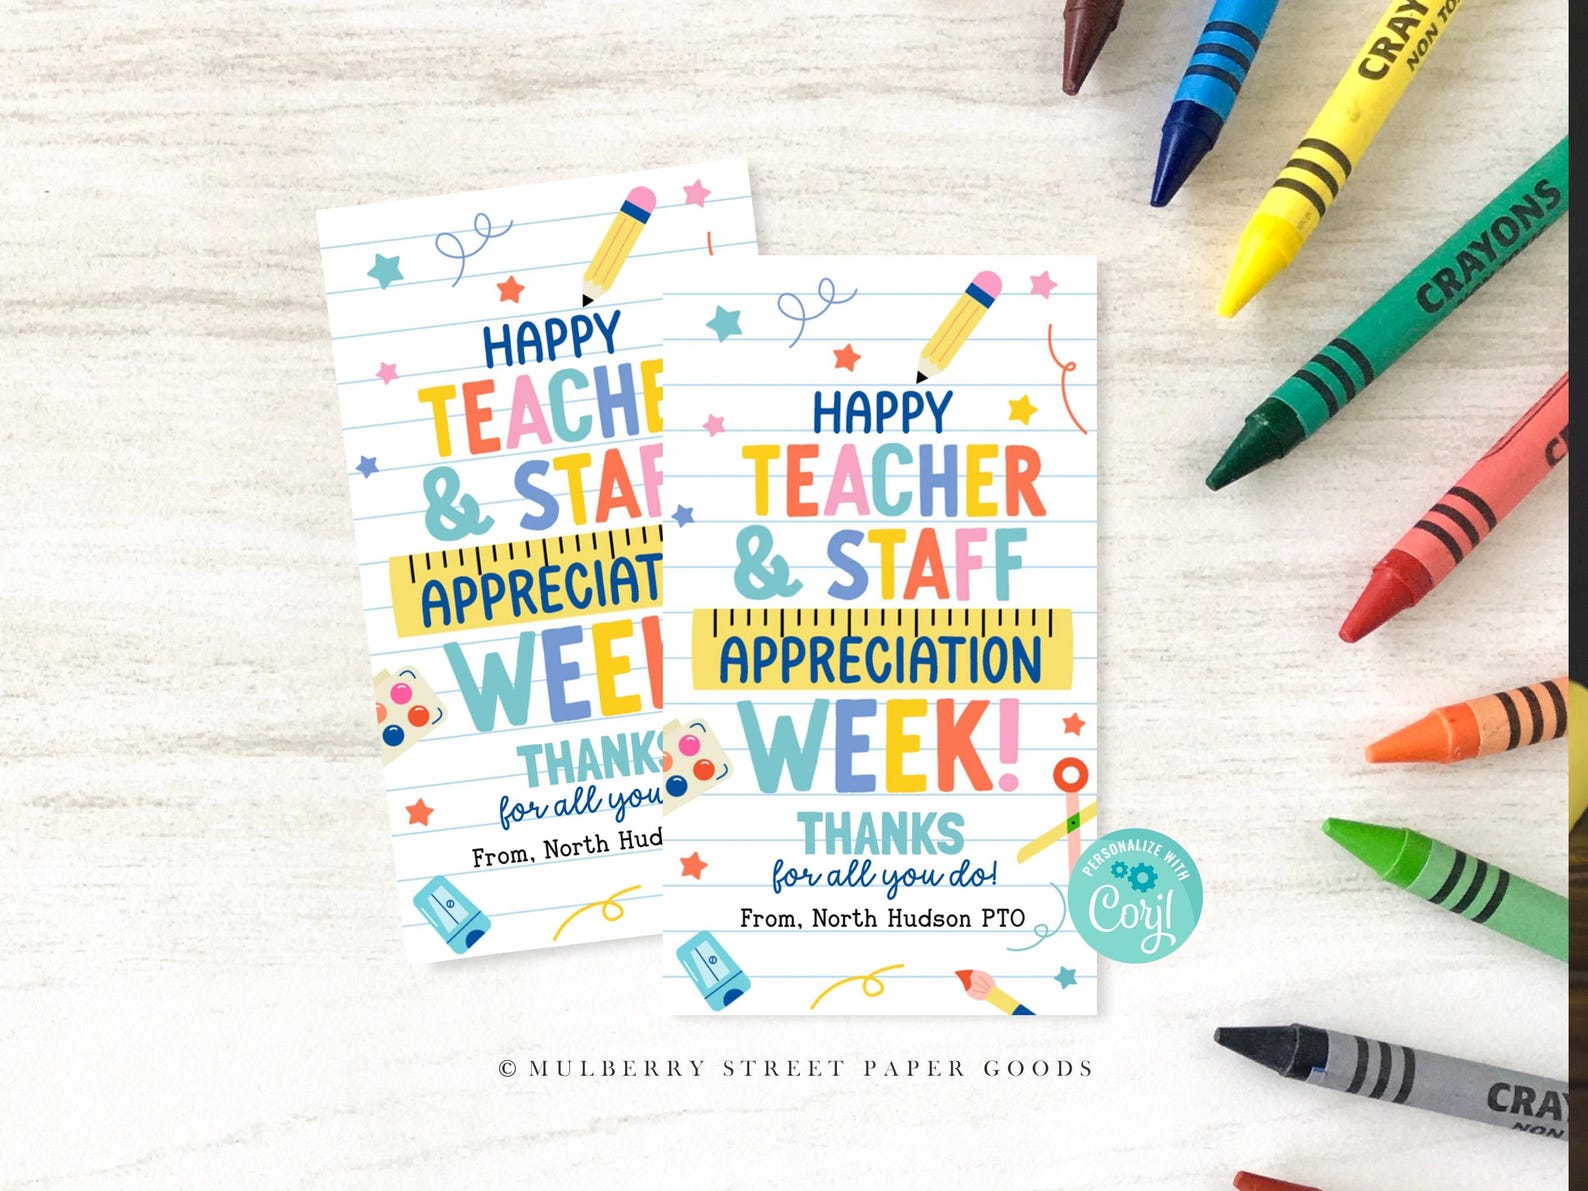 HAPPY
TEACHE
& STAF
APPRECIAT
WEE
THANKS
for all you
From, North Hud
HAPPY
TEACHER
& STAFF
APPRECIATION
WEEK!
THANKS
for all you do!
From, North Hudson PTO
PERSONALIZE WITH
Corjl
© MULBERRY STREET PAPER GOODS
CRAY
NON TO
CRAYONS
C
CRAY
NON